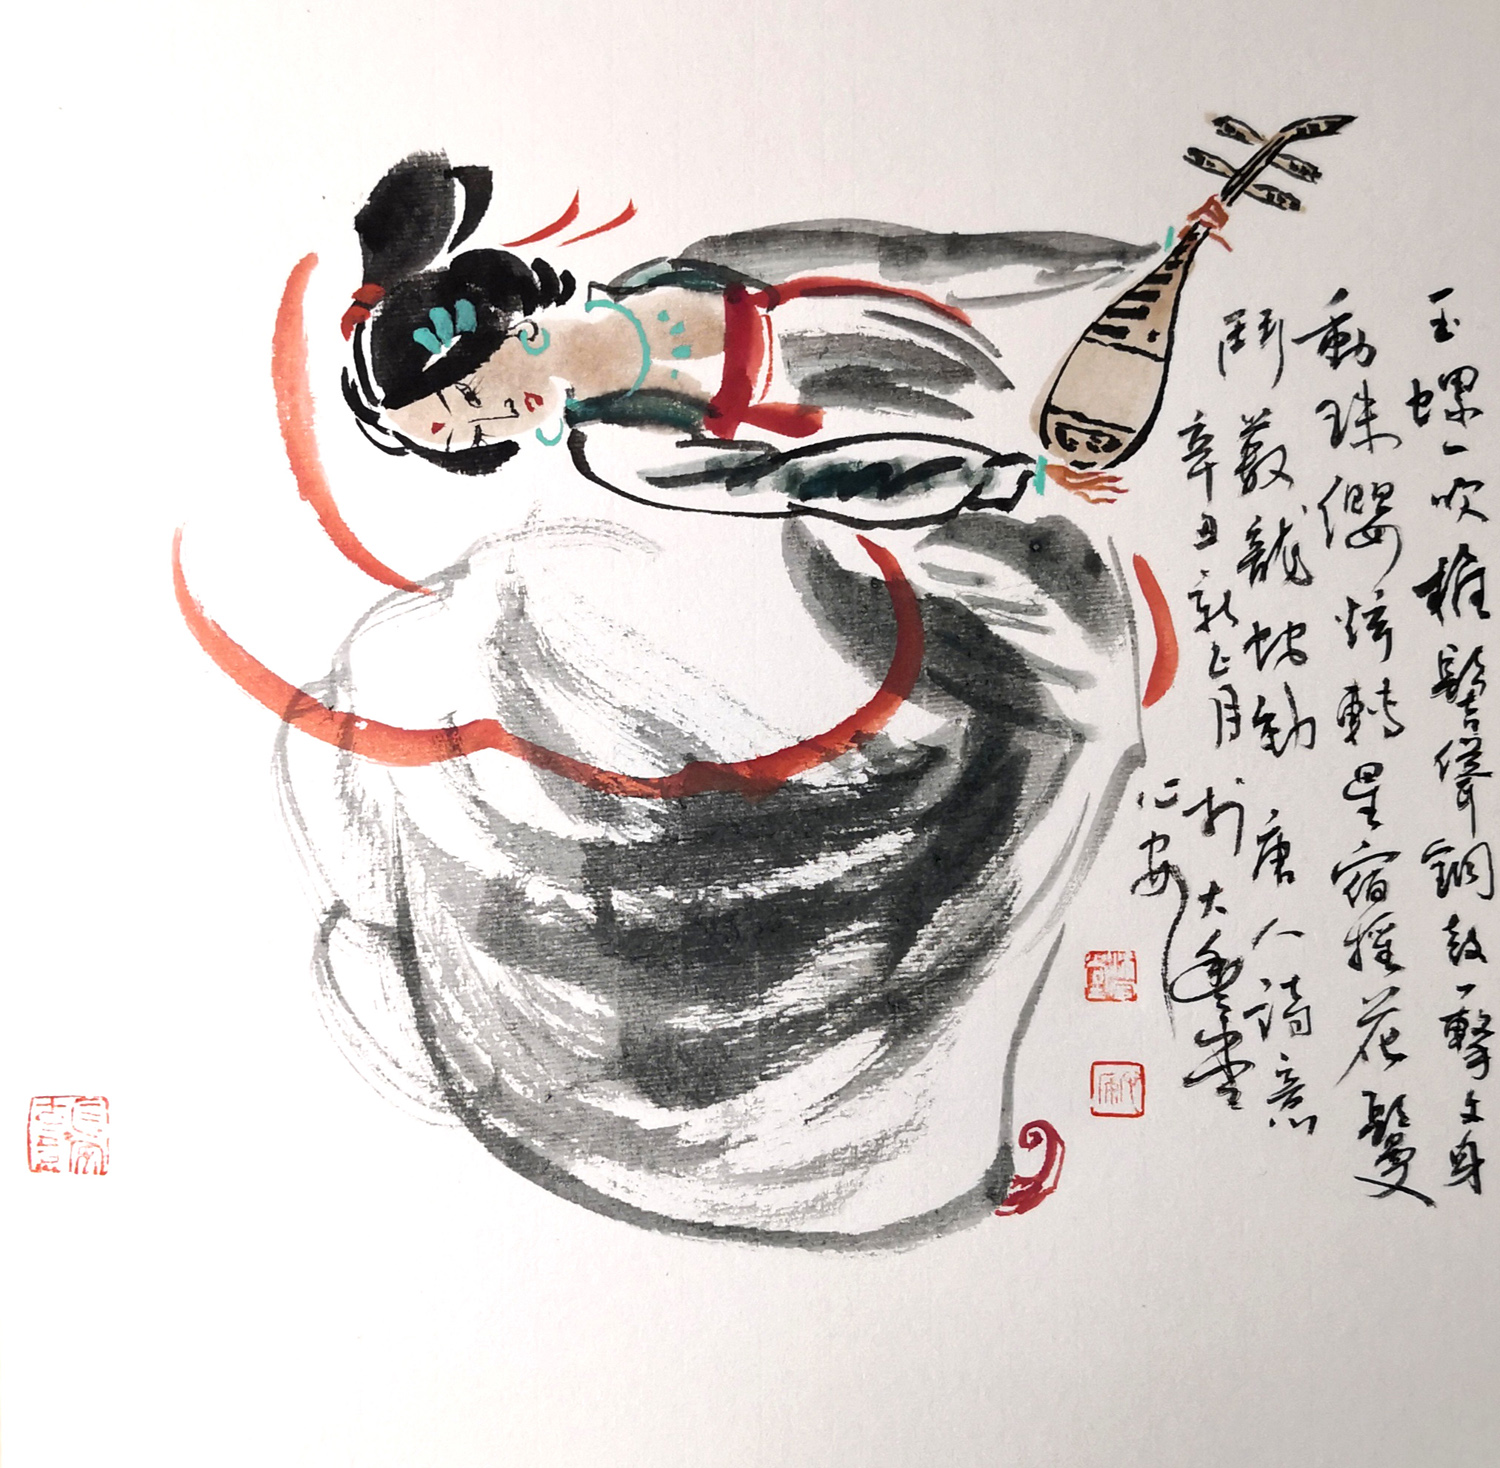 玉螺一吹椎髻聳銅鼓一擊文身
動珠纓炫轉星宿搖花鬘
鬥藪龍蛇動 唐人詩意
辛丑新正月於大風堂
心安